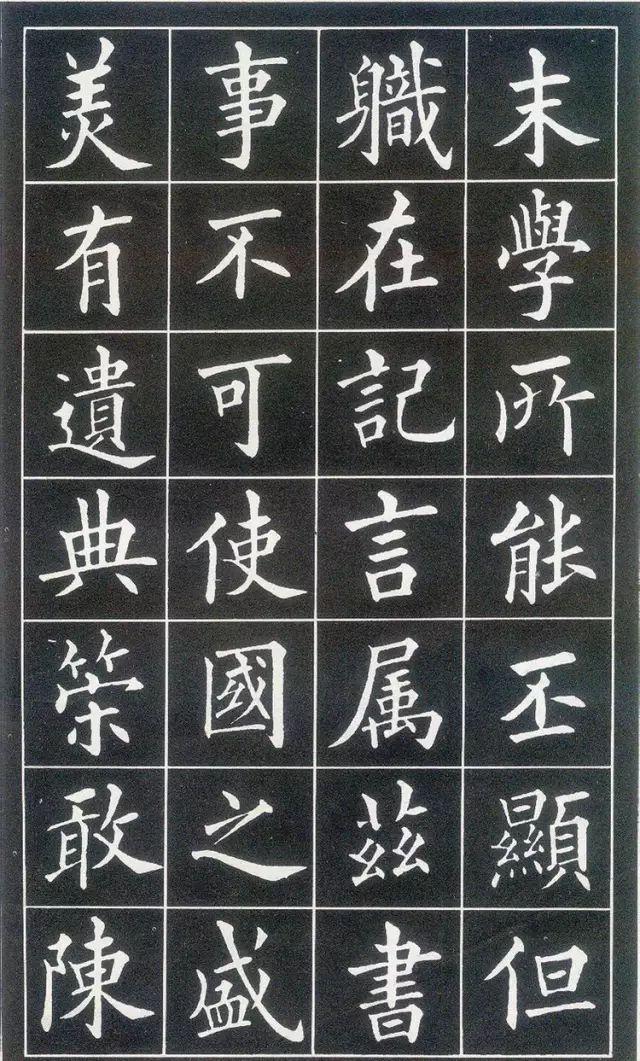 末學所能丕顯但
職在記言属茲書
事不可使國之盛
美有遺典䇿敢陳